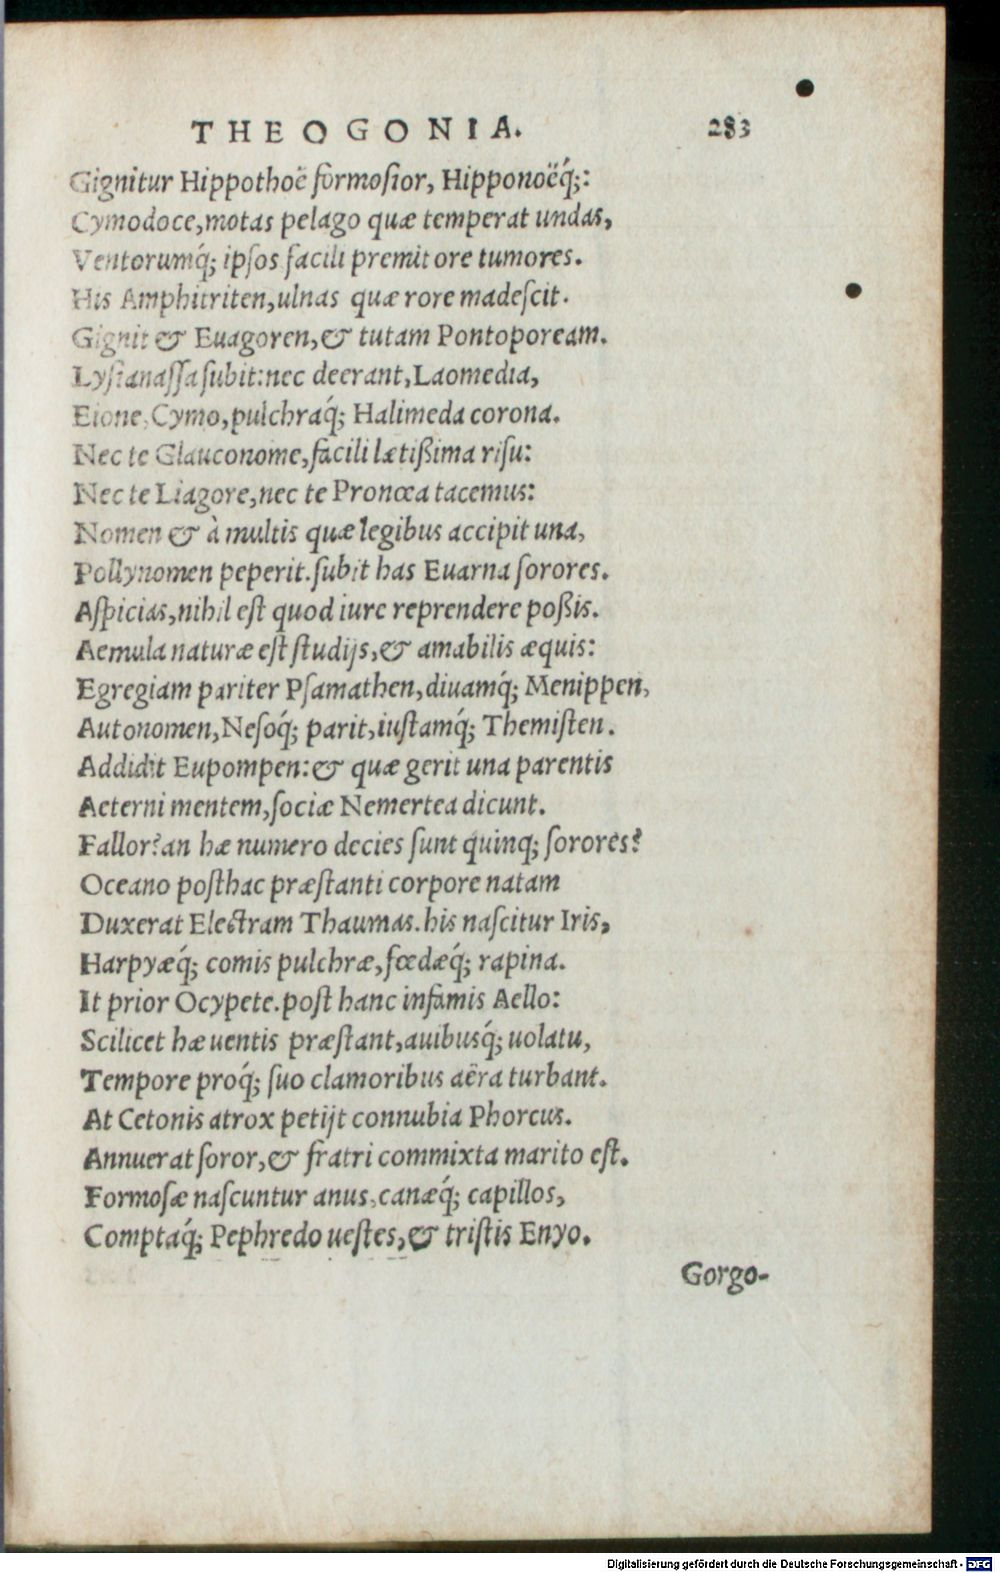 THEOGONIA. 283
Gignitur Hippothoë formoſior, Hipponoëq́;:
Cymodoce,motas pelago quæ temperat undas,
Ventorumq́; ipſos facili premit ore tumores.
His Amphitriten,ulnas quæ rore madeſcit.
Gignit & Euagoren,& tutam Pontopoream.
Lyſianaſſa ſubit:nec deerant,Laomedia,
Eione,Cymo,pulchraq́; Halimeda corona.
Nec te Glauconome,facili lætißima riſu:
Nec te Liagore,nec te Pronœa tacemus:
Nomen & à multis quæ legibus accipit una,
Pollynomen peperit.ſubit has Euarna ſorores.
Aſpicias,nihil eſt quod iure reprendere poßis.
Aemula naturæ eſt ſtudijs,& amabilis æquis:
Egregiam pariter Pſamathen,diuamq́; Menippen,
Autonomen,Neſoq́; parit,iuſtamq́; Themiſten.
Addidit Eupompen:& quæ gerit una parentis
Aeterni mentem,ſociæ Nemertea dicunt.
Fallor?an hæ numero decies ſunt quinq; ſorores?
Oceano poſthac præſtanti corpore natam
Duxerat Electram Thaumas.his naſcitur Iris,
Harpyæq́; comis pulchræ,fœdæq́; rapina.
It prior Ocypete.poſt hanc infamis Aello:
Scilicet hæ uentis præſtant,auibusq́; uolatu,
Tempore proq́; ſuo clamoribus aëra turbant.
At Cetonis atrox petijt connubia Phorcus.
Annuerat ſoror,& fratri commixta marito eſt.
Formoſæ naſcuntur anus,canæq́; capillos,
Comptaq́; Pephredo ueſtes,& triſtis Enyo.
Gorgo-
Digitalisierung gefördert durch die Deutsche Forschungsgemeinschaft - DFG